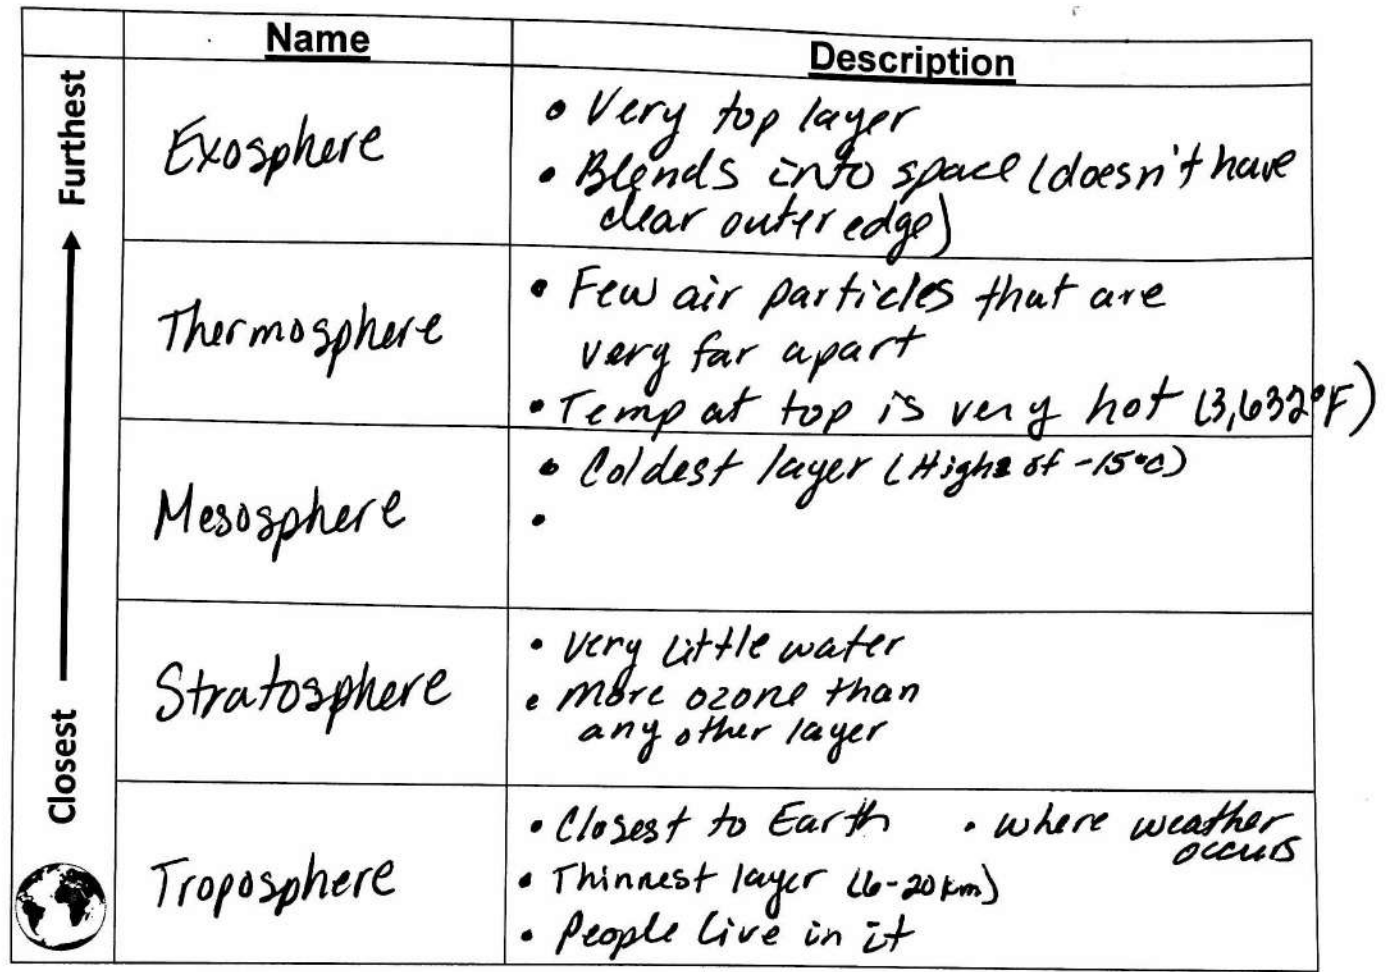 Name
Description
Furthest
Exosphere
• Very top layer
• Blends into space (doesn't have
clear outer edge)
Thermosphere
• Few air particles that are
very far apart
• Temp at top is very hot (3,632°F)
Mesosphere
• Coldest layer (Highs of -15°C)
•
Stratosphere
• Very little water
• More ozone than
any other layer
Closest
Troposphere
• Closest to Earth • where weather
occurs
• Thinnest layer (6-20 km)
• People live in it